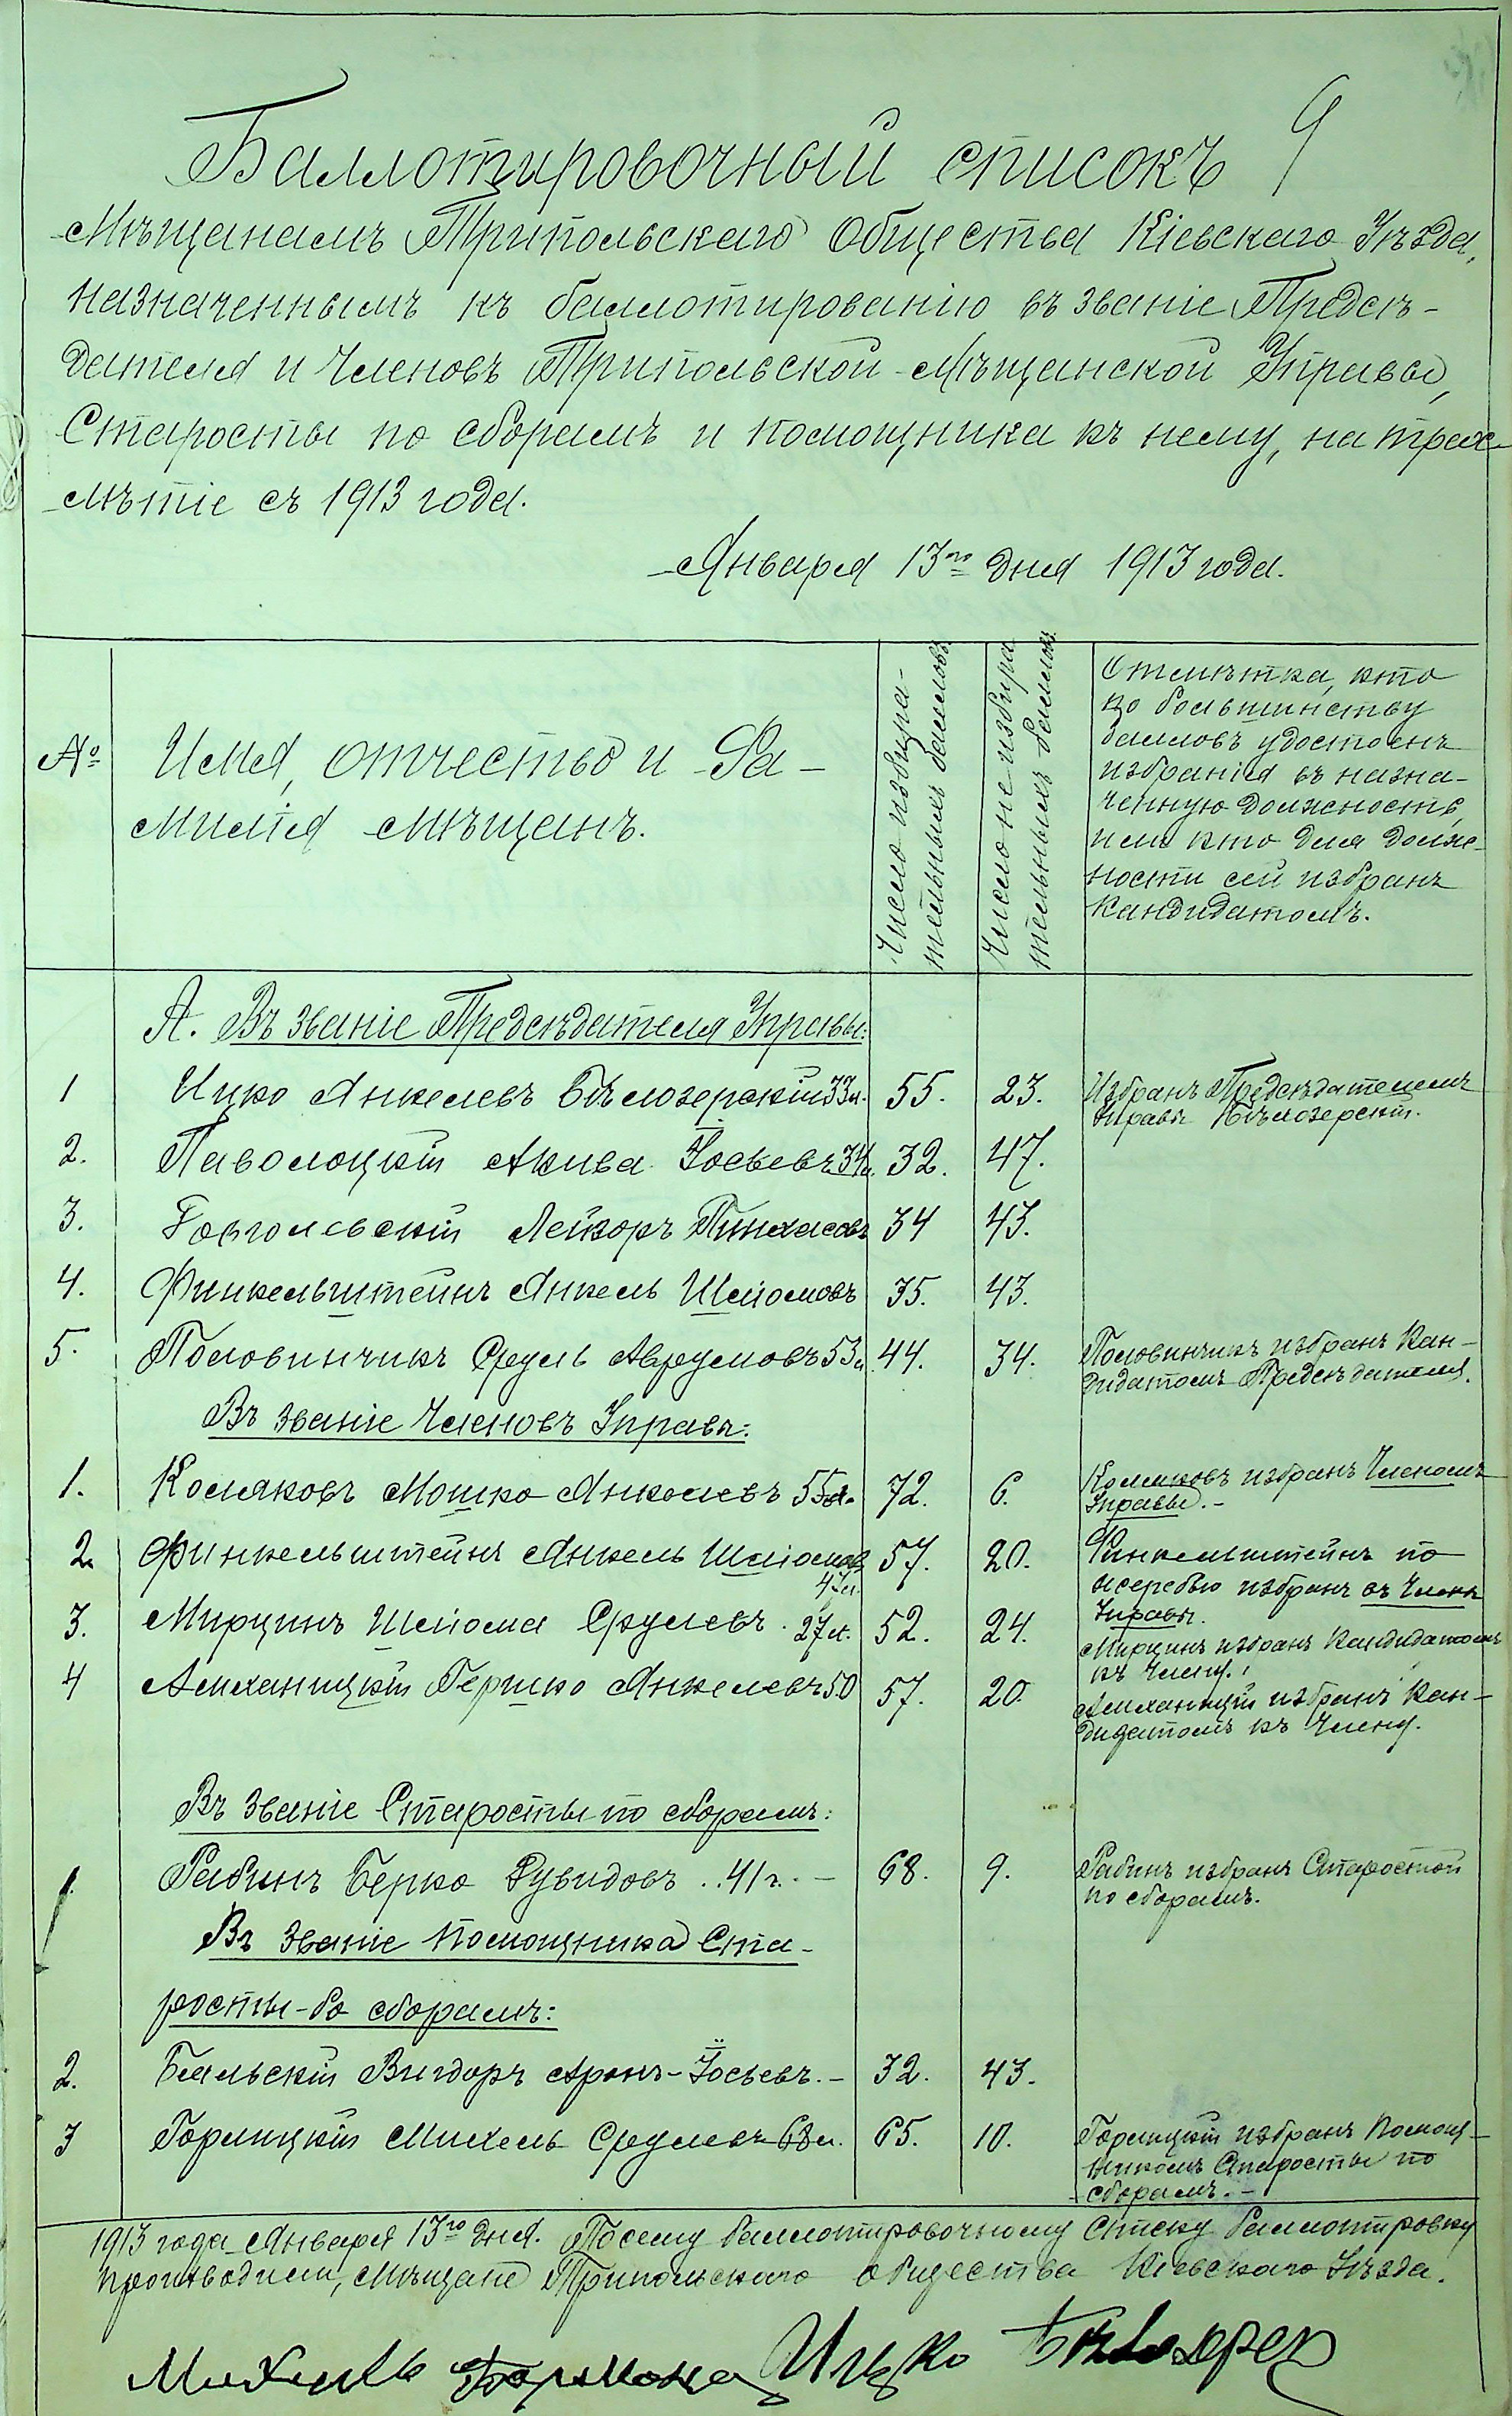 9
Баллотировочный списокъ
Мѣщанамъ Трипольскаго Общества Кіевскаго Уѣзда,
назначеннымъ къ баллотированію въ званіе Предсѣ-
дателя и Членовъ Трипольской Мѣщанской Управы,
Старосты по сборамъ и помощника къ нему, на трех-
лѣтіе съ 1913 года.
Января 13го дня 1913 года.
№
Имя, отчество и Фа-
милія мѣщанъ.
Число избира-
тельныхъ балловъ
Число не избира
тельныхъ балловъ
Отмѣтка, кто
по большинству
балловъ удостоенъ
избранія въ назна-
ченную должность,
или кто для долж-
ности сей избранъ
кандидатомъ.
А. Въ званіе Предсѣдателя Управы:
1 Ицко Янкелевъ Бѣлозерскій 33л. 55. 23. Избранъ Предсѣдателемъ
Управы Бѣлозерскій.
2. Паволоцкій Акива Іосьевъ 34л. 32. 47.
3. Говгольскій Лейзоръ Пинхасовъ 34 43.
4. Финкельштейнъ Янкель Шліомовъ 35. 43.
5. Половинчикъ Сруль Аврумовъ 53л 44. 34. Половинчикъ избранъ Кан-
дидатомъ Предсѣдателя.
Въ званіе Членовъ Управы:
1. Коляковъ Мошко Янкелевъ 55л. 72. 6. Коляковъ избранъ Членомъ
Управы. -
2. Финкельштейнъ Янкель Шліомовъ 57. 20. Финкельштейнъ по
47л. жеребью избранъ въ Члены
Управы.
3. Мирцинъ Шліома Срулевъ. 27л. 52. 24. Мирцинъ избранъ Кандидатомъ
къ Члену.
4 Алиханицкій Гершко Янкелевъ 50 57. 20. Алиханицкій избранъ Кан-
дидатомъ къ Члену.
Въ званіе Старосты по сборамъ:
1. Рабинъ Берко Дувидовъ .. 41 г. - 68. 9. Рабинъ избранъ Старостой
по сборамъ.
Въ званіе Помощника Ста-
росты по сборамъ:
2. Бяльскій Вигдоръ Аронъ-Іосьевъ. - 32. 43.
3 Горлицкій Михель Срулевъ 68л. 65. 10. Горлицкій избранъ Помощ-
никомъ Старосты по
сборамъ. -
1913 года Января 13го дня. По сему баллотировочному списку баллотировку
производили, Мѣщане Трипольскаго общества Кіевскаго Уѣзда.
Ицко